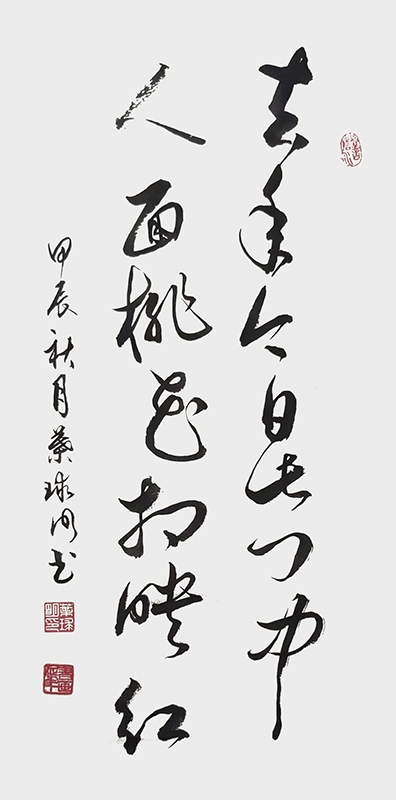 去年今日此门中
人面桃花相映红
甲辰秋月葉球明书